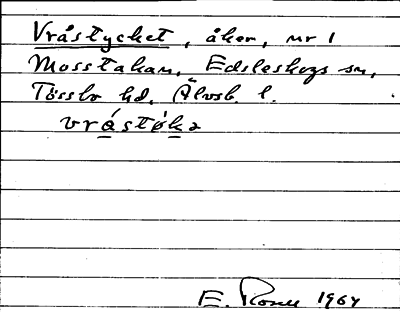 Vråstycket, åker, nr 1
Mosstakan, Edsleskogs sn,
Tössbo hd, Älvsb. l.
vråstøka
E. 1964